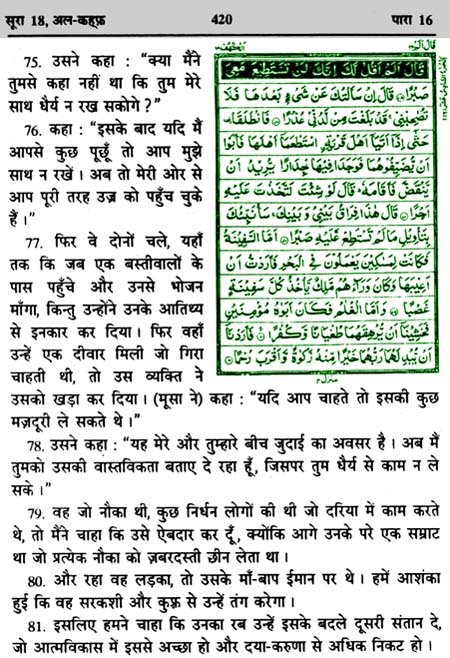 सूरा 18, अल-कहफ़ 420 पारा 16
75. उसने कहा : “क्या मैंने
तुमसे कहा नहीं था कि तुम मेरे
साथ धैर्य न रख सकोगे ?”
76. कहा : “इसके बाद यदि मैं
आपसे कुछ पूछूँ तो आप मुझे
साथ न रखें । अब तो मेरी ओर से
आप पूरी तरह उज़्र को पहुँच चुके
हैं ।”
77. फिर वे दोनों चले, यहाँ
तक कि जब एक बस्तीवालों के
पास पहुँचे और उनसे भोजन
माँगा, किन्तु उन्होंने उनके आतिथ्य
से इनकार कर दिया । फिर वहाँ
उन्हें एक दीवार मिली जो गिरा
चाहती थी, तो उस व्यक्ति ने
قال الم
الكهف
قَالَ اَلَمْ اَقُلْ لَّكَ اِنَّكَ لَنْ تَسْتَطِيْعَ مَعِيَ
صَبْرًا قَالَ اِنْ سَاَلْتُكَ عَنْ شَيْءٍ بَعْدَهَا فَلَا
تُصٰحِبْنِيْ قَدْ بَلَغْتَ مِنْ لَّدُنِّيْ عُذْرًا فَانْطَلَقَا
حَتّٰى اِذَا اَتَيَا اَهْلَ قَرْيَةِ اسْتَطْعَمَا اَهْلَهَا فَاَبَوْا
اَنْ يُّضَيِّفُوْهُمَا فَوَجَدَا فِيْهَا جِدَارًا يُّرِيْدُ اَنْ
يَّنْقَضَّ فَاَقَامَهٗ قَالَ لَوْ شِئْتَ لَتَّخَذْتَ عَلَيْهِ
اَجْرًا قَالَ هٰذَا فِرَاقُ بَيْنِيْ وَبَيْنِكَ سَاُنَبِّئُكَ
بِتَاْوِيْلِ مَا لَمْ تَسْتَطِعْ عَّلَيْهِ صَبْرًا اَمَّا السَّفِيْنَةُ
فَكَانَتْ لِمَسٰكِيْنَ يَعْمَلُوْنَ فِي الْبَحْرِ فَاَرَدْتُّ اَنْ
اَعِيْبَهَا وَكَانَ وَرَآءَهُمْ مَّلِكٌ يَّاْخُذُ كُلَّ سَفِيْنَةٍ
غَصْبًا وَاَمَّا الْغُلٰمُ فَكَانَ اَبَوٰهُ مُؤْمِنَيْنِ
فَخَشِيْنَآ اَنْ يُّرْهِقَهُمَا طُغْيَانًا وَّكُفْرًا فَاَرَدْنَآ
اَنْ يُّبْدِلَهُمَا رَبُّهُمَا خَيْرًا مِّنْهُ زَكٰوةً وَّاَقْرَبَ رُحْمًا
उसको खड़ा कर दिया । (मूसा ने) कहा : “यदि आप चाहते तो इसकी कुछ
मज़दूरी ले सकते थे ।”
78. उसने कहा : “यह मेरे और तुम्हारे बीच जुदाई का अवसर है । अब मैं
तुमको उसकी वास्तविकता बताए दे रहा हूँ, जिसपर तुम धैर्य से काम न ले
सके ।”
79. वह जो नौका थी, कुछ निर्धन लोगों की थी जो दरिया में काम करते
थे, तो मैंने चाहा कि उसे ऐबदार कर दूँ, क्योंकि आगे उनके परे एक सम्राट
था जो प्रत्येक नौका को ज़बरदस्ती छीन लेता था ।
80. और रहा वह लड़का, तो उसके माँ-बाप ईमान पर थे । हमें आशंका
हुई कि वह सरकशी और कुफ़्र से उन्हें तंग करेगा ।
81. इसलिए हमने चाहा कि उनका रब उन्हें इसके बदले दूसरी संतान दे,
जो आत्मविकास में इससे अच्छा हो और दया-करुणा से अधिक निकट हो ।